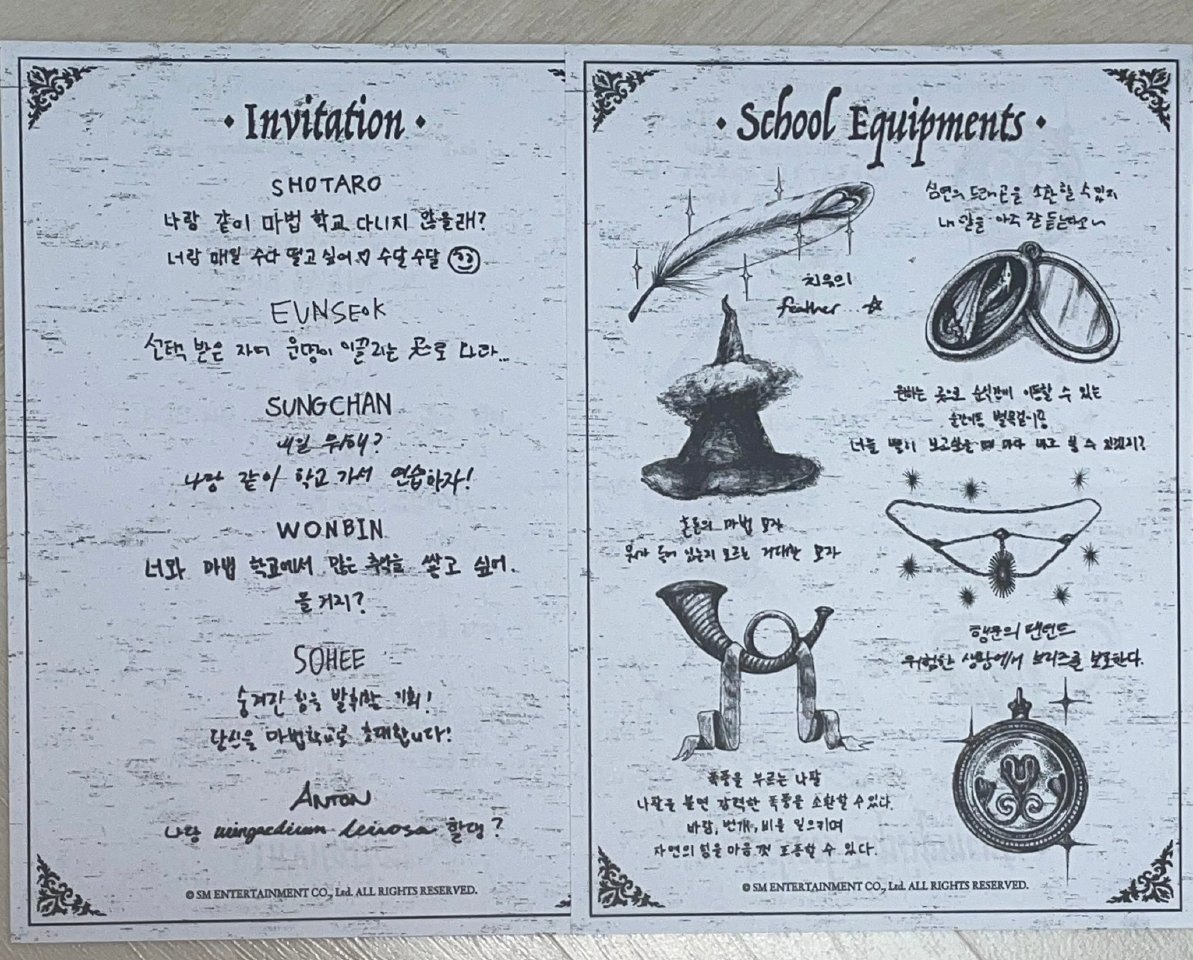 Invitation
SHOTARO
나랑 같이 마법 학교 다니지 않을래?
너랑 매일 수다 떨고 싶어♡ 수달수달
EUNSEOK
선택 받은 자여 운명이 이끌리는 곳으로 따라...
SUNGCHAN
내일 뭐해?
나랑 같이 학교 가서 연습하자!
WONBIN
너와 마법 학교에서 많은 추억을 쌓고 싶어.
올거지?
SOHEE
숨겨진 힘을 발휘할 기회!
당신을 마법학교로 초대합니다!
ANTON
나랑 wingardium leviosa 할램?
© SM ENTERTAINMENT CO., Ltd. ALL RIGHTS RESERVED.
School Equipments
심연의 드래곤을 소환할 수 있지
내 말을 아주 잘 듣는다고~
치유의
feather...☆
원하는 곳으로 순식간에 이동할 수 있는
순간이동 벌목걸이
너들 많이 보고싶을 때 마다 바로 볼 수 있겠지?
혼돈의 마법 모자
뭐가 들어 있는지 모르는 거대한 모자
행운의 팬던트
위험한 상황에서 브리즈를 보호한다.
폭풍을 부르는 나팔
나팔을 불면 강력한 폭풍을 소환할 수 있다.
바람, 번개, 비를 일으키며
자연의 힘을 마음껏 조종할 수 있다.
© SM ENTERTAINMENT CO., Ltd. ALL RIGHTS RESERVED.